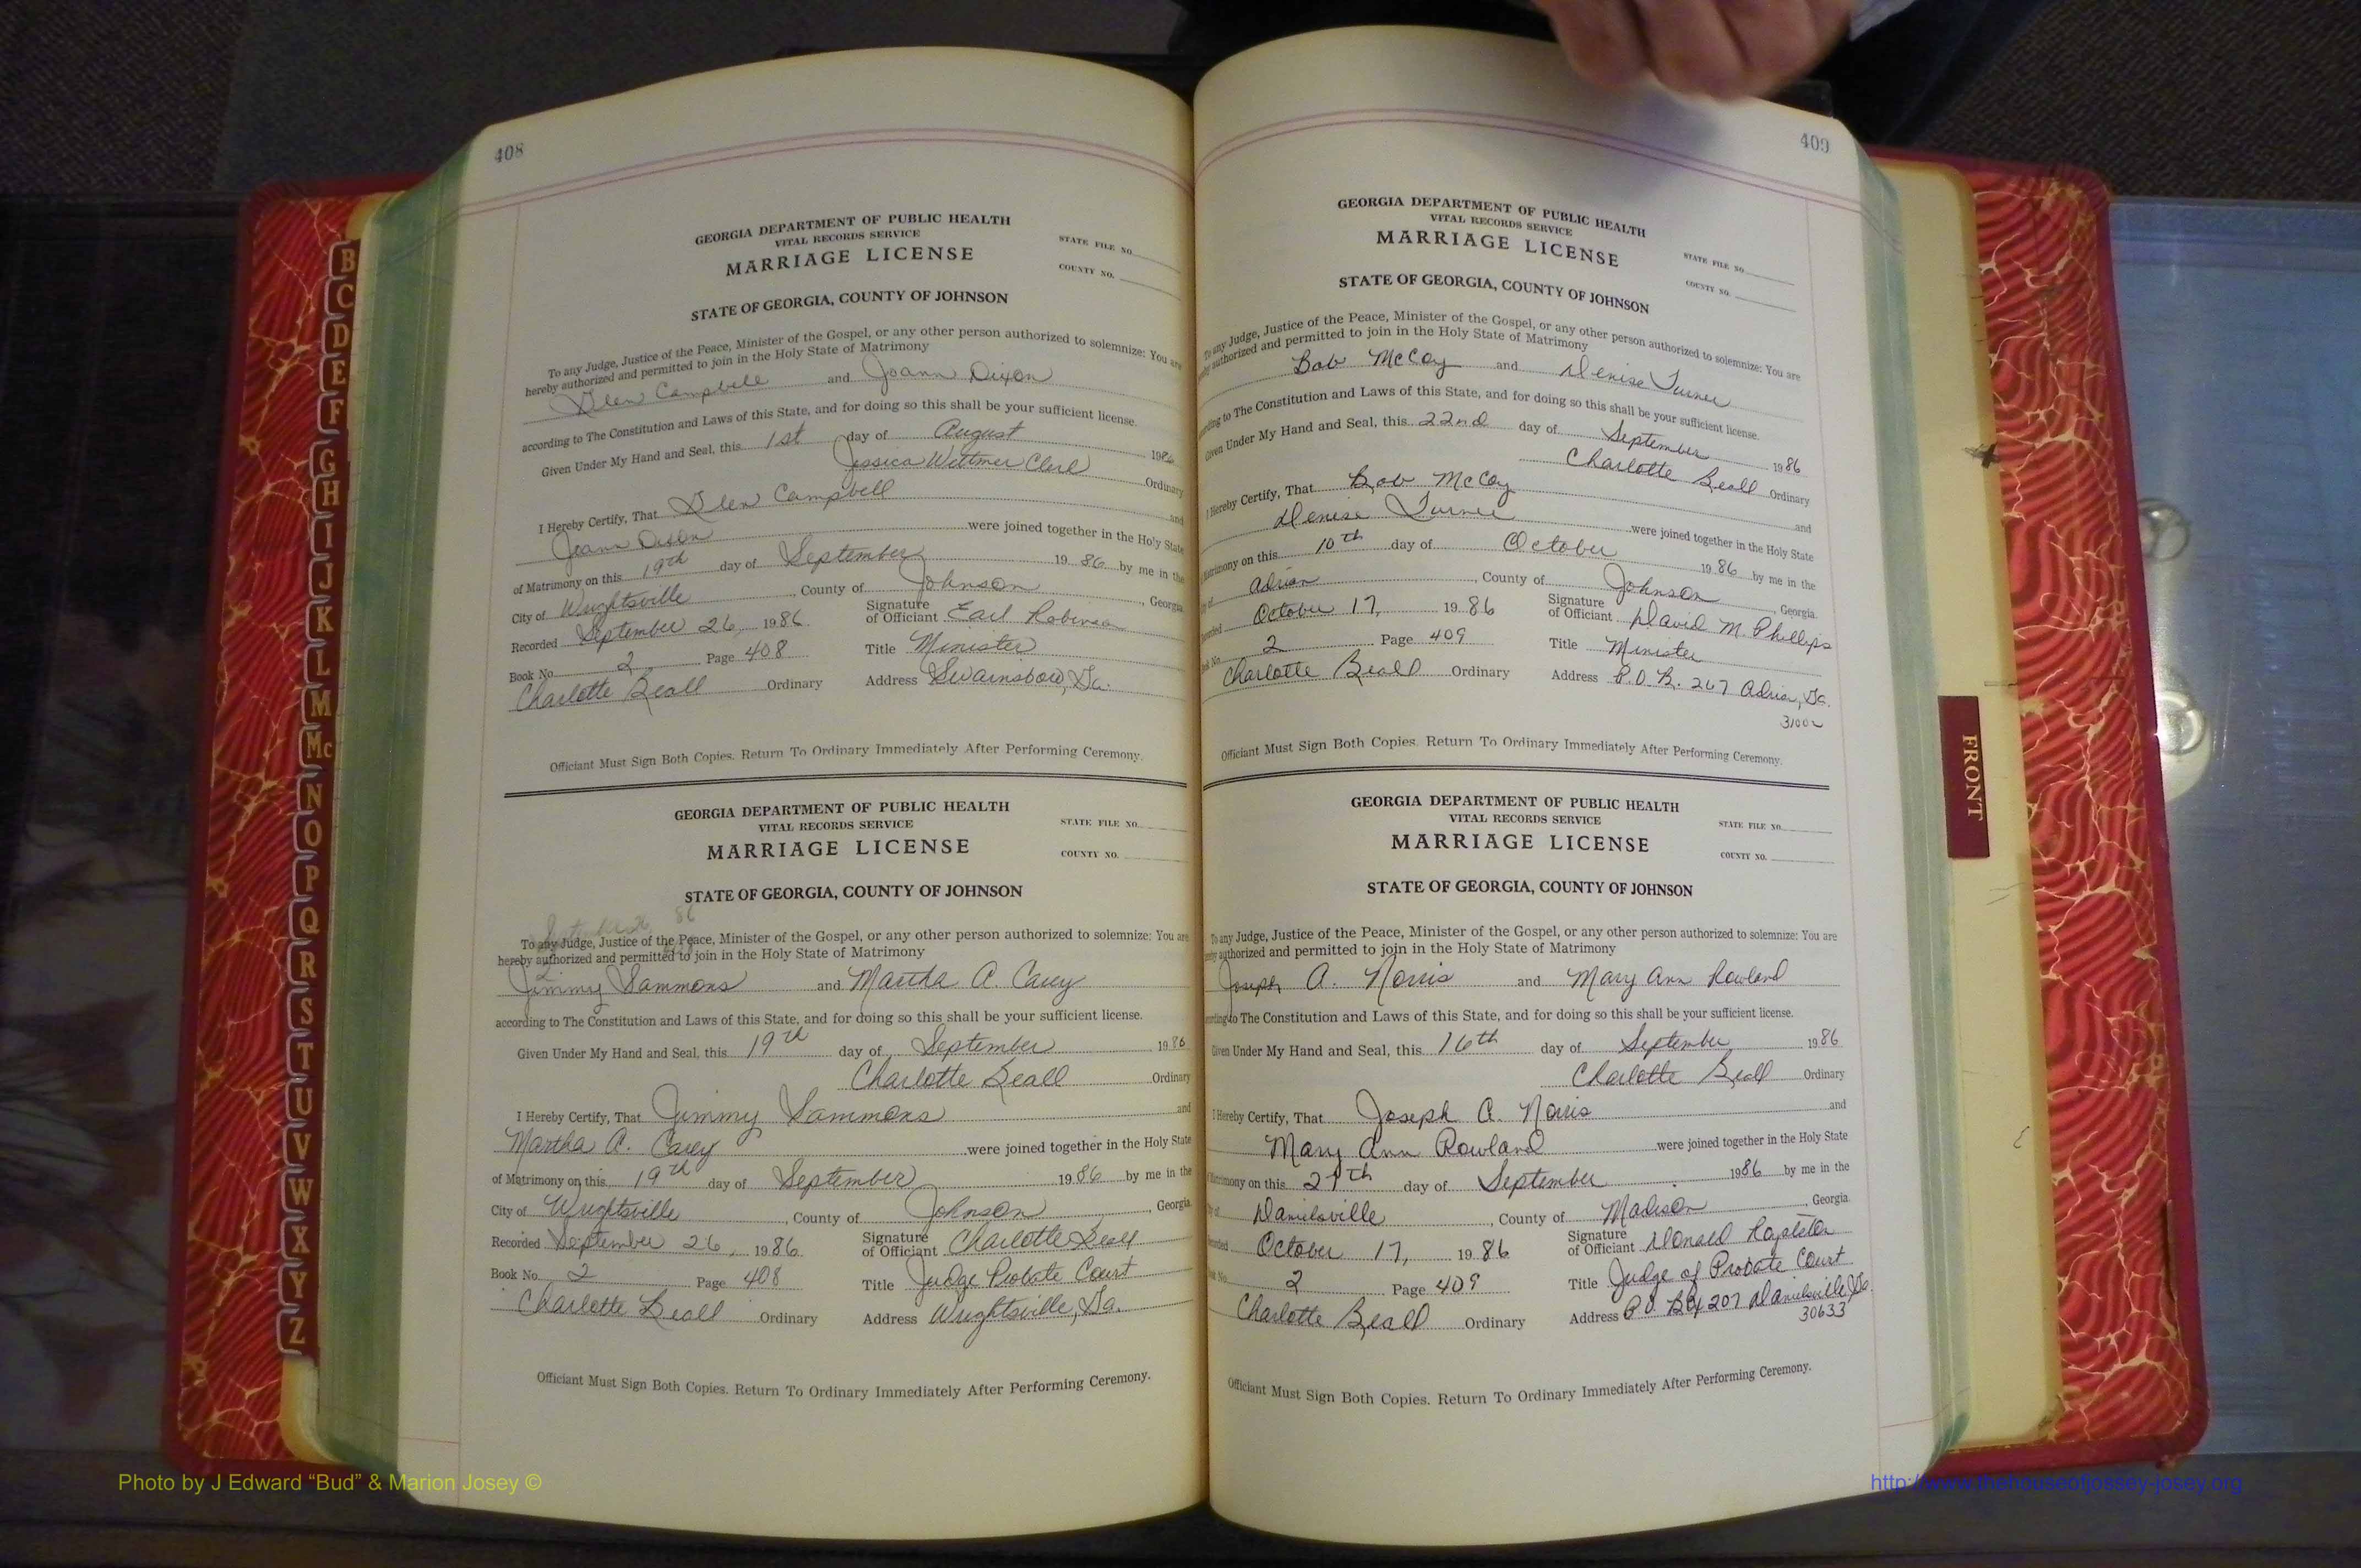 408
GEORGIA DEPARTMENT OF PUBLIC HEALTH
VITAL RECORDS SERVICE
MARRIAGE LICENSE
STATE FILE NO.
COUNTY NO.
STATE OF GEORGIA, COUNTY OF JOHNSON
To any Judge, Justice of the Peace, Minister of the Gospel, or any other person authorized to solemnize: You are
hereby authorized and permitted to join in the Holy State of Matrimony
Glen Campbell and Joann Dixon
according to The Constitution and Laws of this State, and for doing so this shall be your sufficient license.
Given Under My Hand and Seal, this 1st day of August 1986
Jessica Wittmer Clerk Ordinary
I Hereby Certify, That Glen Campbell and
Joann Dixon were joined together in the Holy State
of Matrimony on this 19th day of September 19 86 by me in the
City of Wrightsville, County of Johnson, Georgia
Recorded September 26, 1986 Signature of Officiant Earl Robinson
Book No. 2 Page 408 Title Minister
Charlotte Beall Ordinary Address Swainsboro, Ga.
Officiant Must Sign Both Copies. Return To Ordinary Immediately After Performing Ceremony.
GEORGIA DEPARTMENT OF PUBLIC HEALTH
VITAL RECORDS SERVICE
MARRIAGE LICENSE
STATE FILE NO.
COUNTY NO.
STATE OF GEORGIA, COUNTY OF JOHNSON
September 26 86
To any Judge, Justice of the Peace, Minister of the Gospel, or any other person authorized to solemnize: You are
hereby authorized and permitted to join in the Holy State of Matrimony
Jimmy Sammons and Martha A. Carey
according to The Constitution and Laws of this State, and for doing so this shall be your sufficient license.
Given Under My Hand and Seal, this 19th day of September 1986
Charlotte Beall Ordinary
I Hereby Certify, That Jimmy Sammons and
Martha A. Carey were joined together in the Holy State
of Matrimony on this 19th day of September 19 86 by me in the
City of Wrightsville, County of Johnson, Georgia
Recorded September 26, 1986 Signature of Officiant Charlotte Beall
Book No. 2 Page 408 Title Judge Probate Court
Charlotte Beall Ordinary Address Wrightsville, Ga.
Officiant Must Sign Both Copies. Return To Ordinary Immediately After Performing Ceremony.
409
GEORGIA DEPARTMENT OF PUBLIC HEALTH
VITAL RECORDS SERVICE
MARRIAGE LICENSE
STATE FILE NO.
COUNTY NO.
STATE OF GEORGIA, COUNTY OF JOHNSON
To any Judge, Justice of the Peace, Minister of the Gospel, or any other person authorized to solemnize: You are
authorized and permitted to join in the Holy State of Matrimony
Bob McCoy and Denise Turner
to The Constitution and Laws of this State, and for doing so this shall be your sufficient license.
Given Under My Hand and Seal, this 22nd day of September 1986
Charlotte Beall Ordinary
I Hereby Certify, That Bob McCoy and
Denise Turner were joined together in the Holy State
on this 10th day of October 1986 by me in the
Adrian, County of Johnson, Georgia.
October 17, 19 86 Signature of Officiant David M. Phillips
2 Page 409 Title Minister
Charlotte Beall Ordinary Address P.O. B. 267 Adrian, Ga.
31002
Officiant Must Sign Both Copies. Return To Ordinary Immediately After Performing Ceremony.
GEORGIA DEPARTMENT OF PUBLIC HEALTH
VITAL RECORDS SERVICE
MARRIAGE LICENSE
STATE FILE NO.
COUNTY NO.
STATE OF GEORGIA, COUNTY OF JOHNSON
To any Judge, Justice of the Peace, Minister of the Gospel, or any other person authorized to solemnize: You are
authorized and permitted to join in the Holy State of Matrimony
Joseph A. Norris and Mary Ann Rowland
to The Constitution and Laws of this State, and for doing so this shall be your sufficient license.
Given Under My Hand and Seal, this 16th day of September 1986
Charlotte Beall Ordinary
I Hereby Certify, That Joseph A. Norris and
Mary Ann Rowland were joined together in the Holy State
on this day of September 1986 by me in the
Danielsville, County of Madison, Georgia
October 17, 19 86 Signature of Officiant Donald Royston
2 Page 409 Title Judge of Probate Court
Charlotte Beall Ordinary Address P.O. Box 207 Danielsville Ga.
30633
Officiant Must Sign Both Copies. Return To Ordinary Immediately After Performing Ceremony.
B
C
D
E
F
G
H
I
J
K
L
M
Mc
N
O
P
Q
R
S
T
U
V
W
X
Y
Z
FRONT
Photo by J Edward “Bud” & Marion Josey ©
http://www.thehouseofjossey-josey.org